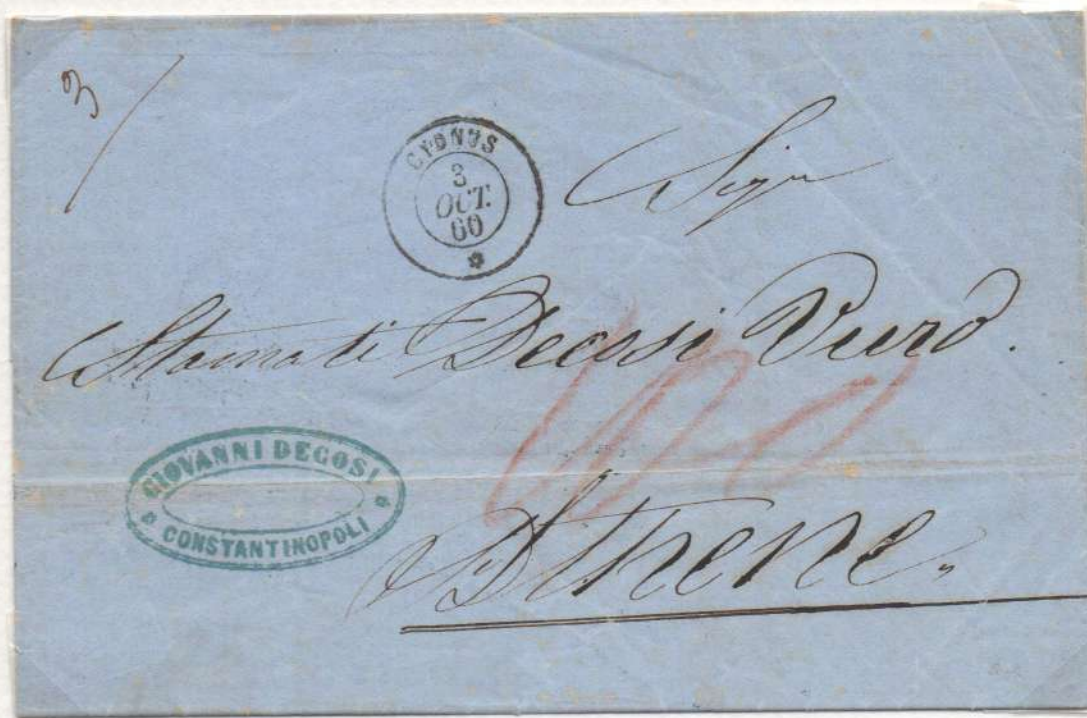 3
CYDNUS
3
OCT.
60
Sigr
Stamati Decosi Vuro.
GIOVANNI DECOSI
CONSTANTINOPOLI
Athene